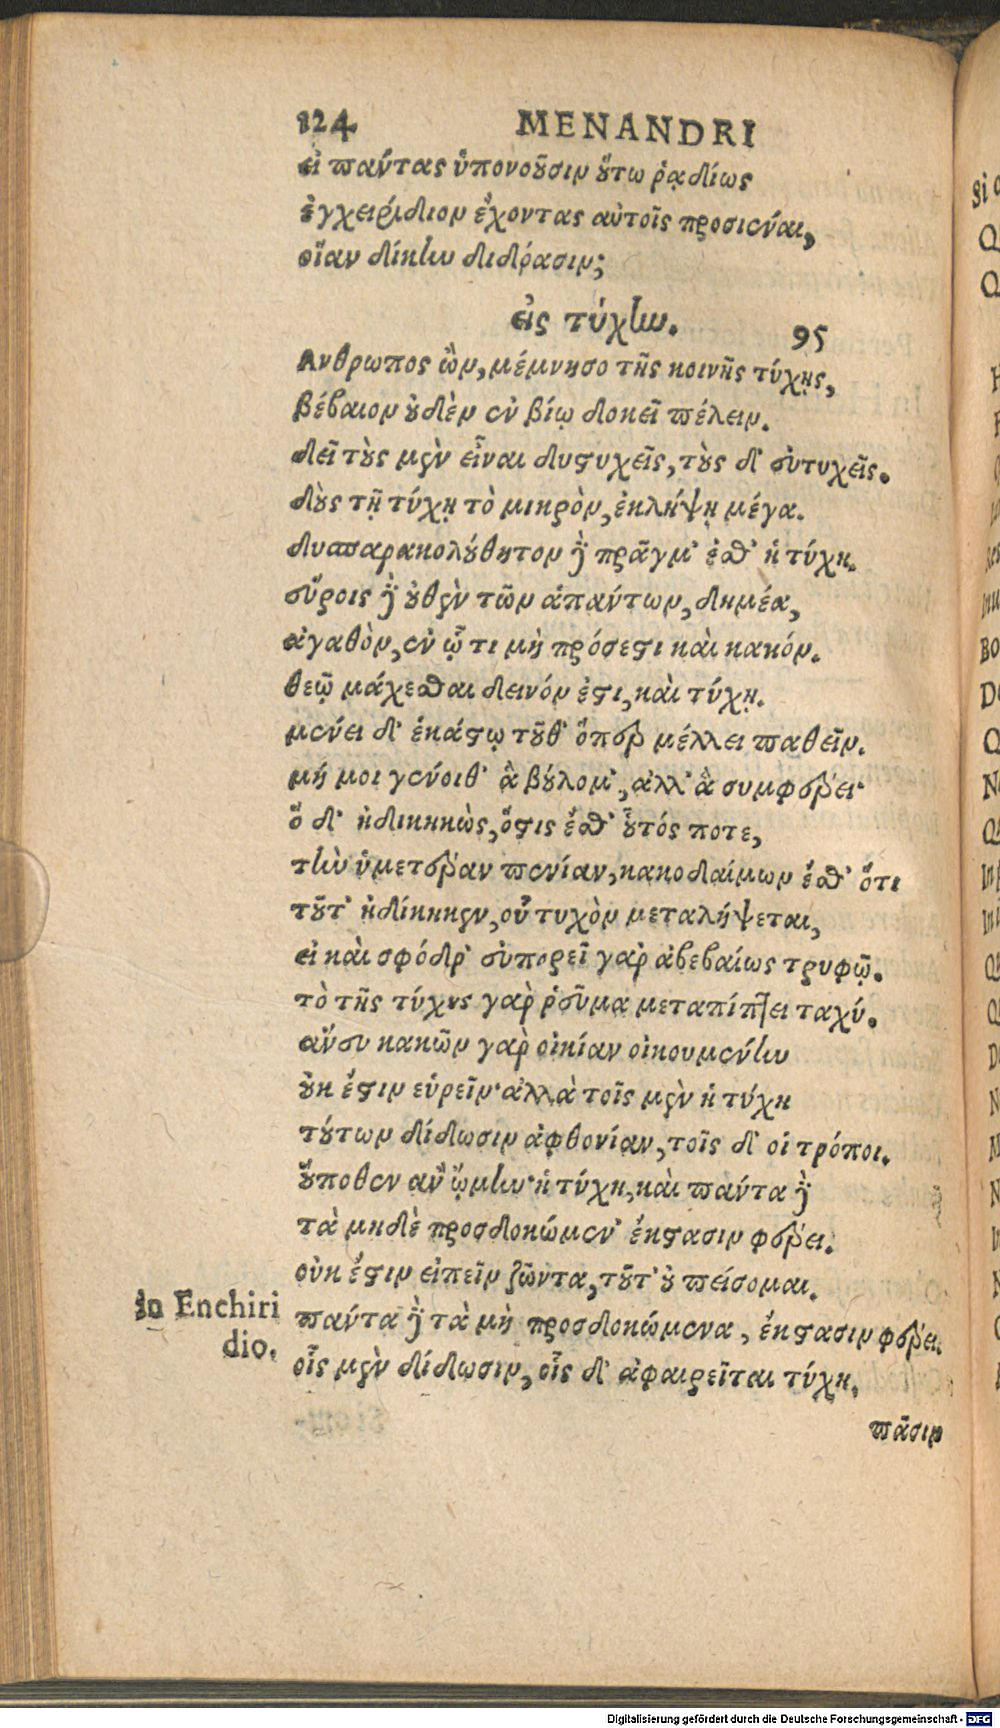 124 MENANDRI
εἰ παύτας ὑπονοῦσιν οὕτω ῥᾳδίως
ἐγχειρίδιον ἔχοντας αὐτοῖς προσιέναι,
οἵαν δίκην διδόασιν;
εἰς τύχην. 95
Ἄνθρωπος ὢν, μέμνησο τῆς κοινῆς τύχης,
βέβαιον οὐδὲν ἐν βίῳ δοκεῖ πέλειν.
δεῖ τοὺς μὲν εἶναι δυστυχεῖς, τοὺς δ' εὐτυχεῖς.
δοὺς τῇ τύχῃ τὸ μικρὸν, ἐκλήψῃ μέγα.
δυσπαρακολούθητον δὲ πρᾶγμ' ἐσθ' ἡ τύχη.
εὕροις δὲ οὐθὲν τῶν ἁπάντων, δημέα,
ἀγαθὸν, ἐν ᾧ τι μὴ πρόσεστι καὶ κακόν.
θεῷ μάχεσθαι δεινόν ἐστι, καὶ τύχῃ.
μένει δ' ἑκάστῳ τοῦθ' ὅπερ μέλλει παθεῖν.
μή μοι γένοιθ' ἃ βούλομ', ἀλλ' ἃ συμφέρει·
ὅ δ' ἠδικηκὼς, ὅστις ἔσθ' οὗτός ποτε,
τὴν ὑμετέραν πενίαν, κακοδαίμων ἔσθ' ὅτι
τοῦτ' ἠδίκηκεν, οὗ τυχὸν μεταλήψεται,
εἰ καὶ σφόδρ' εὐπορεῖ γὰρ ἀβεβαίως τρυφῷ.
τὸ τῆς τύχης γὰρ ῥεῦμα μεταπίπτει ταχύ.
ἄνευ κακῶν γὰρ οἰκίαν οἰκουμένην
οὐκ ἔστιν εὑρεῖν· ἀλλὰ τοῖς μὲν ἡ τύχη
τούτων δίδωσιν ἀφθονίαν, τοῖς δ' οἱ τρόποι.
οὔποθεν ἂν ᾤμην· ἡ τύχη, καὶ πάντα δὲ
τὰ μηδὲ προσδοκώμεν' ἔκστασιν φέρει.
οὐκ ἔστιν εἰπεῖν ζῶντα, τοῦτ' οὐ πείσομαι.
In Enchiri
dio.
πάντα δὲ τὰ μὴ προσδοκώμενα, ἔκστασιν φέρει.
οἷς μὲν δίδωσιν, οἷς δ' ἀφαιρεῖται τύχη.
πᾶσιν
Digitalisierung gefördert durch die Deutsche Forschungsgemeinschaft - DFG